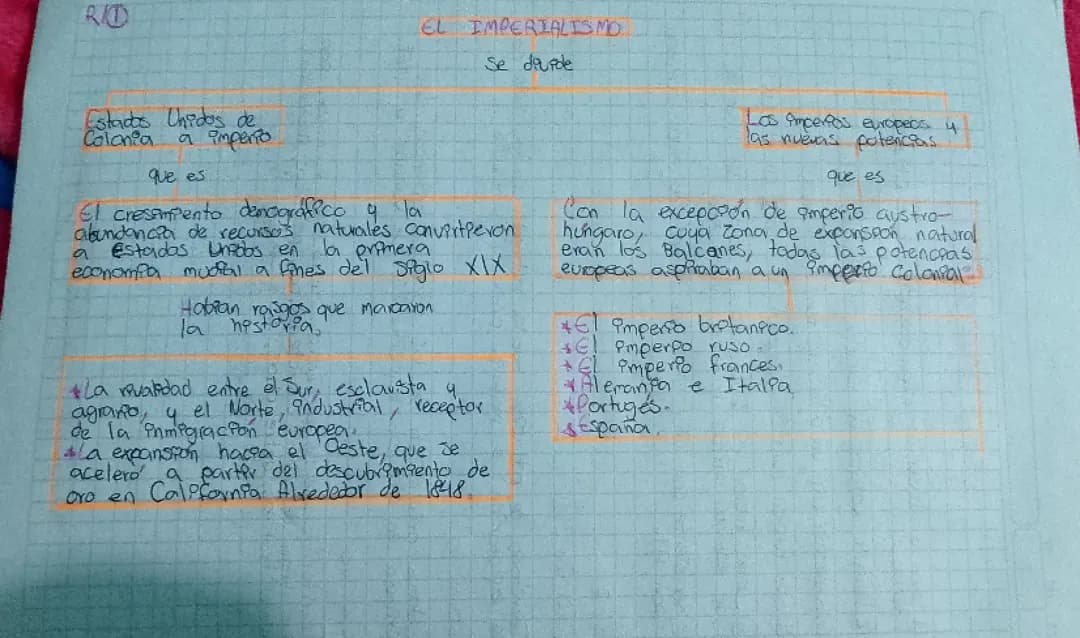 R/①
EL IMPERIALISMO
Se divide
Estados Unidos de
Colonia a imperio
que es
El cresimiento demográfico y la
abundancia de recursos naturales convirtieron
a Estados Unidos en la primera
economía mudial a fines del siglo XIX
Habian rasgos que marcaron
la historia.
*La rivalidad entre el Sur, esclavista y
agrario, y el Norte, industrial, receptor
de la inmigración europea.
*La expansión hacia el Oeste, que se
aceleró a partir del descubrimiento de
oro en California Alrededor de 1848.
Los imperios europeos y
las nuevas potencias
que es
Con la excepción de imperio austro-
húngaro, cuya zona de expansión natural
eran los Balcanes, todas las potencias
europeas aspiraban a un imperio Colonial
*El imperio britanico.
*El imperio ruso.
*El imperio frances.
*Alemania e Italia
*Portugés.
*España.